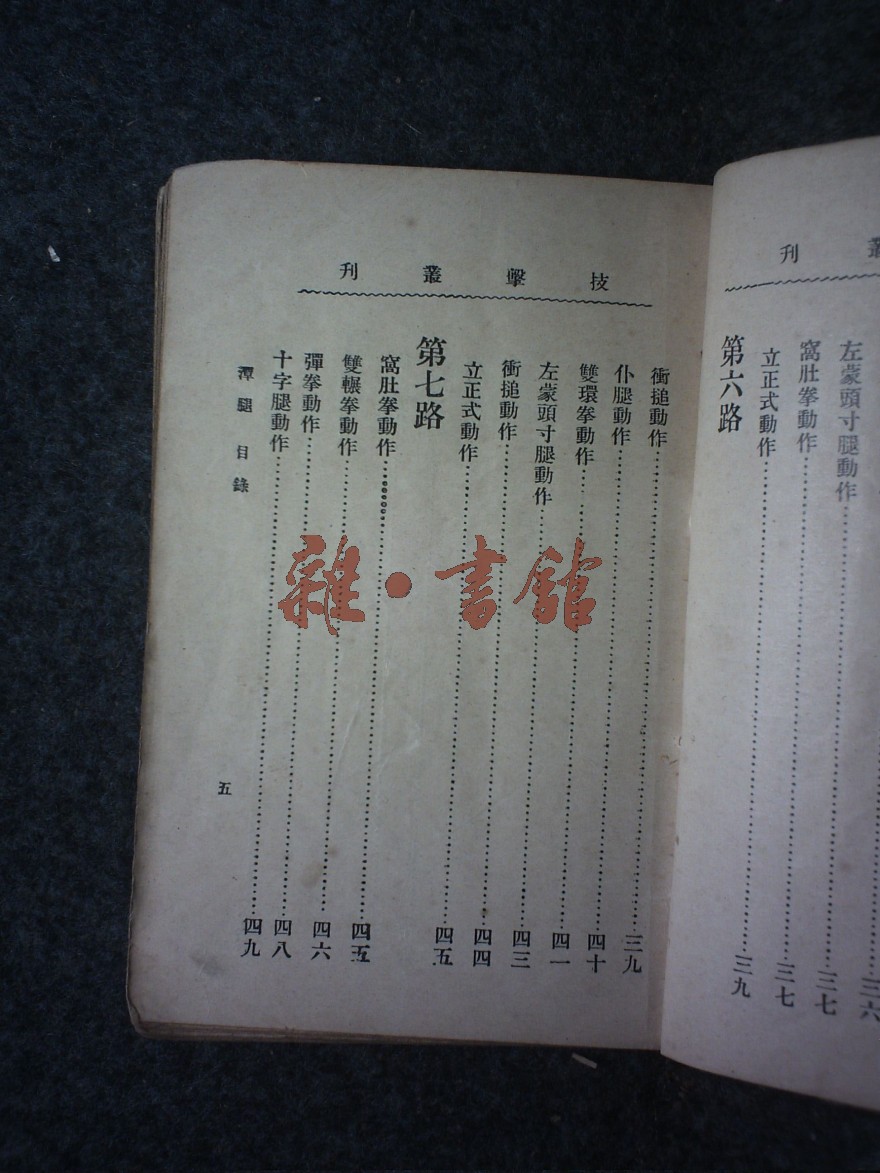 叢刊
三六
左蒙頭寸腿動作……三七
窩肚拳動作……三七
立正式動作……三九
第六路
技擊叢刊
衝搥動作……三九
仆腿動作……四十
雙環拳動作……四一
左蒙頭寸腿動作……四三
衝搥動作……四四
立正式動作……四五
第七路
窩肚拳動作……四五
雙輾拳動作……四六
彈拳動作……四八
十字腿動作……四九
潭腿 目錄
五
雜·書館